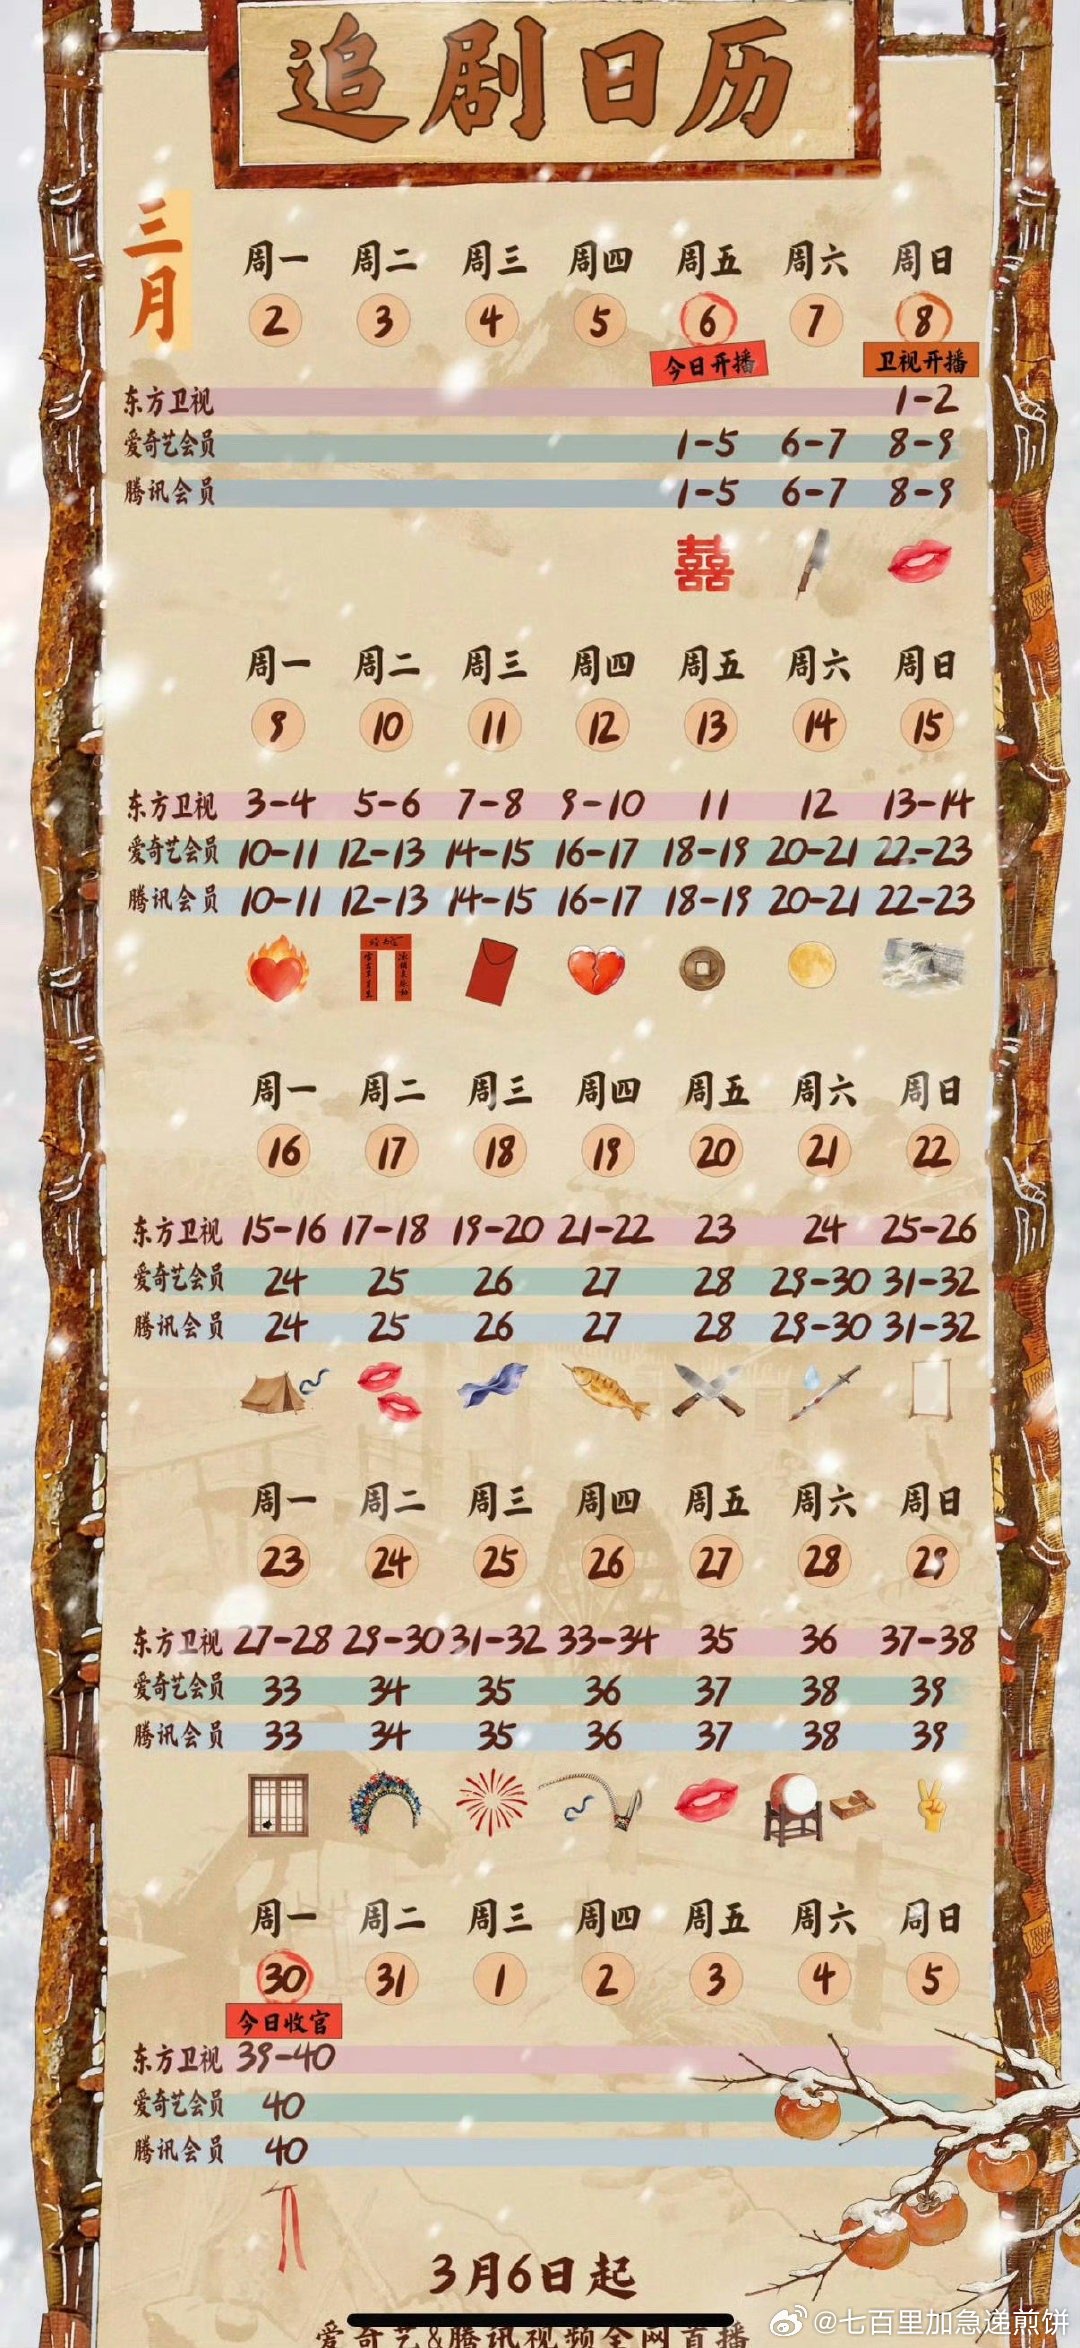 追剧日历
三月
周一 周二 周三 周四 周五 周六 周日
2 3 4 5 6 7 8
今日开播 卫视开播
东方卫视 1-2
爱奇艺会员 1-5 6-7 8-9
腾讯会员 1-5 6-7 8-9
囍
周一 周二 周三 周四 周五 周六 周日
9 10 11 12 13 14 15
东方卫视 3-4 5-6 7-8 9-10 11 12 13-14
爱奇艺会员 10-11 12-13 14-15 16-17 18-19 20-21 22-23
腾讯会员 10-11 12-13 14-15 16-17 18-19 20-21 22-23
周一 周二 周三 周四 周五 周六 周日
16 17 18 19 20 21 22
东方卫视 15-16 17-18 19-20 21-22 23 24 25-26
爱奇艺会员 24 25 26 27 28 29-30 31-32
腾讯会员 24 25 26 27 28 29-30 31-32
周一 周二 周三 周四 周五 周六 周日
23 24 25 26 27 28 29
东方卫视 27-28 29-30 31-32 33-34 35 36 37-38
爱奇艺会员 33 34 35 36 37 38 39
腾讯会员 33 34 35 36 37 38 39
周一 周二 周三 周四 周五 周六 周日
30 31 1 2 3 4 5
今日收官
东方卫视 39-40
爱奇艺会员 40
腾讯会员 40
3月6日起
爱奇艺&腾讯视频全网首播
@七百里加急递煎饼